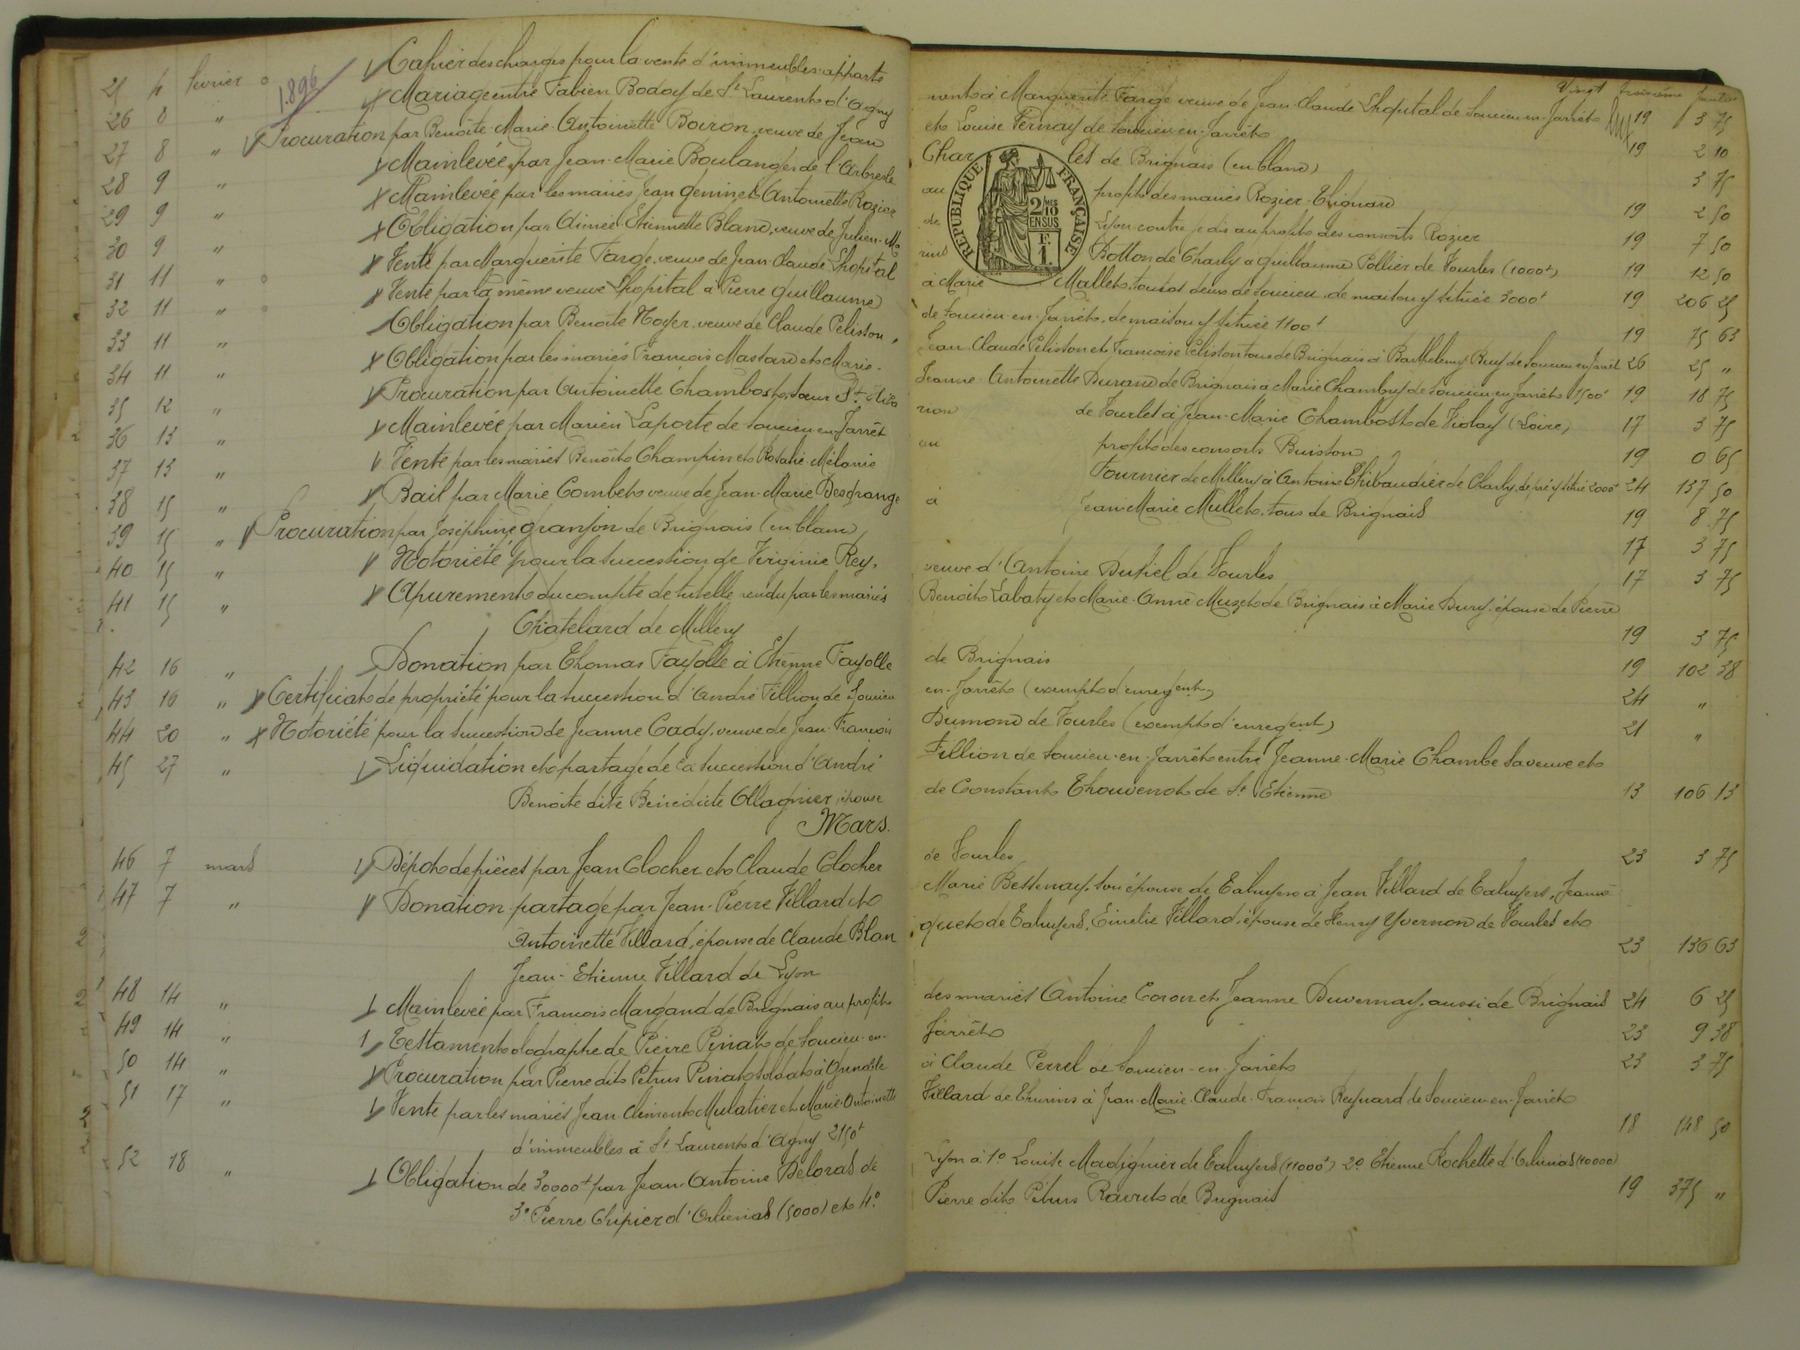 Vingt troisième feuillet
1896
25 4 février Cahier des charges pour la vente d'immeubles apparte nant à Marguerite Farge veuve de Jean Claude Lhopital de Soucieu en Jarrêt 19 3 75
26 8 " Mariage entre Fabien Bodoy de St Laurent d'Agny et Louise Fernay de Soucieu-en-Jarrêt 19 2 10
27 8 " Procuration par Benoite-Marie-Antoinette Boiron, veuve de Jean Char let de Brignais (en blanc) 3 75
28 9 " Mainlevée par Jean-Marie Boulanger de l'Arbresle au profit des mariés Rozier-Thignard 19 2 50
29 9 " Mainlevée par les mariés Jean Genin et Antoinette Rozier de Lyon contre et au profit des consorts Rozier 19 7 50
30 9 " Obligation par Aimée-Etiennette Blanc, veuve de Julien-Ma Botton de Charly à Guillaume Pollier de Vourles (1000f) 19 12 50
31 11 " Vente par Marguerite Farge, veuve de Jean Claude Lhopital à Marie Mallet, tous deux de Soucieu, de maison y située 3000f 19 206 25
32 11 " Vente par la même veuve Lhopital à Pierre Guillaume de Soucieu-en-Jarrêt, de maison y située 1100f 19 75 63
33 11 " Obligation par Benoite Noyer, veuve de Claude Pelisson, Jean Claude Pelisson et Françoise Pelisson tous de Brignais à Barthelemy Buy de Soucieu en Jarrêt 26 25 "
34 11 " Obligation par les mariés François Massard et Marie- Jeanne-Antoinette Durand de Brignais à Marie Chambry de Soucieu en Jarrêt 1500f 19 18 75
35 12 " Procuration par Antoinette Chambost, soeur St de Vourles à Jean-Marie Chambost de Violay (Loire) 17 3 75
36 13 " Mainlevée par Marien Laporte de Soucieu en Jarrêt au profit des consorts Buisson 19 0 65
37 13 " Vente par les mariés Benoît Champin et Rosalie Mélanie Fournier de Millery à Antoine Thibaudier de Charly, de pré y situé 2000f 24 137 50
38 15 " Bail par Marie Combet veuve de Jean-Marie Desgrange à Jean-Marie Mullet, tous de Brignais 19 8 75
39 15 " Procuration par Joséphine Granjon de Brignais (en blanc) 17 3 75
40 15 " Notoriété pour la succession de Virginie Rey, veuve d'Antoine Dutiel de Vourles 17 3 75
41 15 " Apurement du compte de tutelle rendu par les mariés Benoît Labaty et Marie-Anne Muzet de Brignais à Marie Dury, épouse de Pierre
Chatelard de Millery 19 3 75
42 16 " Donation par Thomas Fayolle à Etienne Fayolle de Brignais 19 102 38
43 16 " Certificat de propriété pour la succession d'André Fillion de Soucieu en-Jarrêt (exempt d'enregent) 24 "
44 20 " Notoriété pour la succession de Jeanne Cady, veuve de Jean-François Dumond de Vourles (exempt d'enregent) 21 "
45 27 " Liquidation et partage de la succession d'André Fillion de Soucieu-en-Jarrêt entre Jeanne-Marie Chambe sa veuve et
Benoite dite Bénédicte Ollagnier, épouse de Constant Thouvenot de St Etienne 13 106 13
Mars.
46 7 mars Dépôt de pièces par Jean Clocher et Claude Clocher de Vourles 23 3 75
47 7 " Donation-partage par Jean-Pierre Villard et Marie Bessenay, son épouse de Taluyers à Jean Villard de Taluyers, Jeanne
Antoinette Villard, épouse de Claude Blan quet de Taluyers, Emelie Villard, épouse de Henry Yvernon de Vourles et
Jean-Etienne Villard de Lyon 23 136 63
48 14 " Mainlevée par François Margand de Brignais au profit des mariés Antoine Coron et Jeanne Duvernay, aussi de Brignais 24 6 25
49 14 " Testament olographe de Pierre Pinat de Soucieu-en- Jarrêt 23 9 38
50 14 " Procuration par Pierre dit Petrus Pinat soldat à Grenoble à Claude Perrel de Soucieu-en-Jarrêt 23 3 75
51 17 " Vente par les mariés Jean-Clément Mulatier et Marie-Antoinette Villard de Thurins à Jean-Marie-Claude-François Reynard de Soucieu-en-Jarrêt
d'immeubles à St Laurent d'Agny 2150f 18 148 50
52 18 " Obligation de 30000f par Jean-Antoine Deloras de Lyon à 1o Louise Madignier de Taluyers (11000f) 2o Etienne Rochette d'Orlienas (10000)
3o Pierre Chipier d'Orlienas (5000) et 4o Pierre dit Pétrus Ravut de Brignais 19 375 "
RÉPUBLIQUE FRANÇAISE
2/10MES
EN SUS
F. 1.